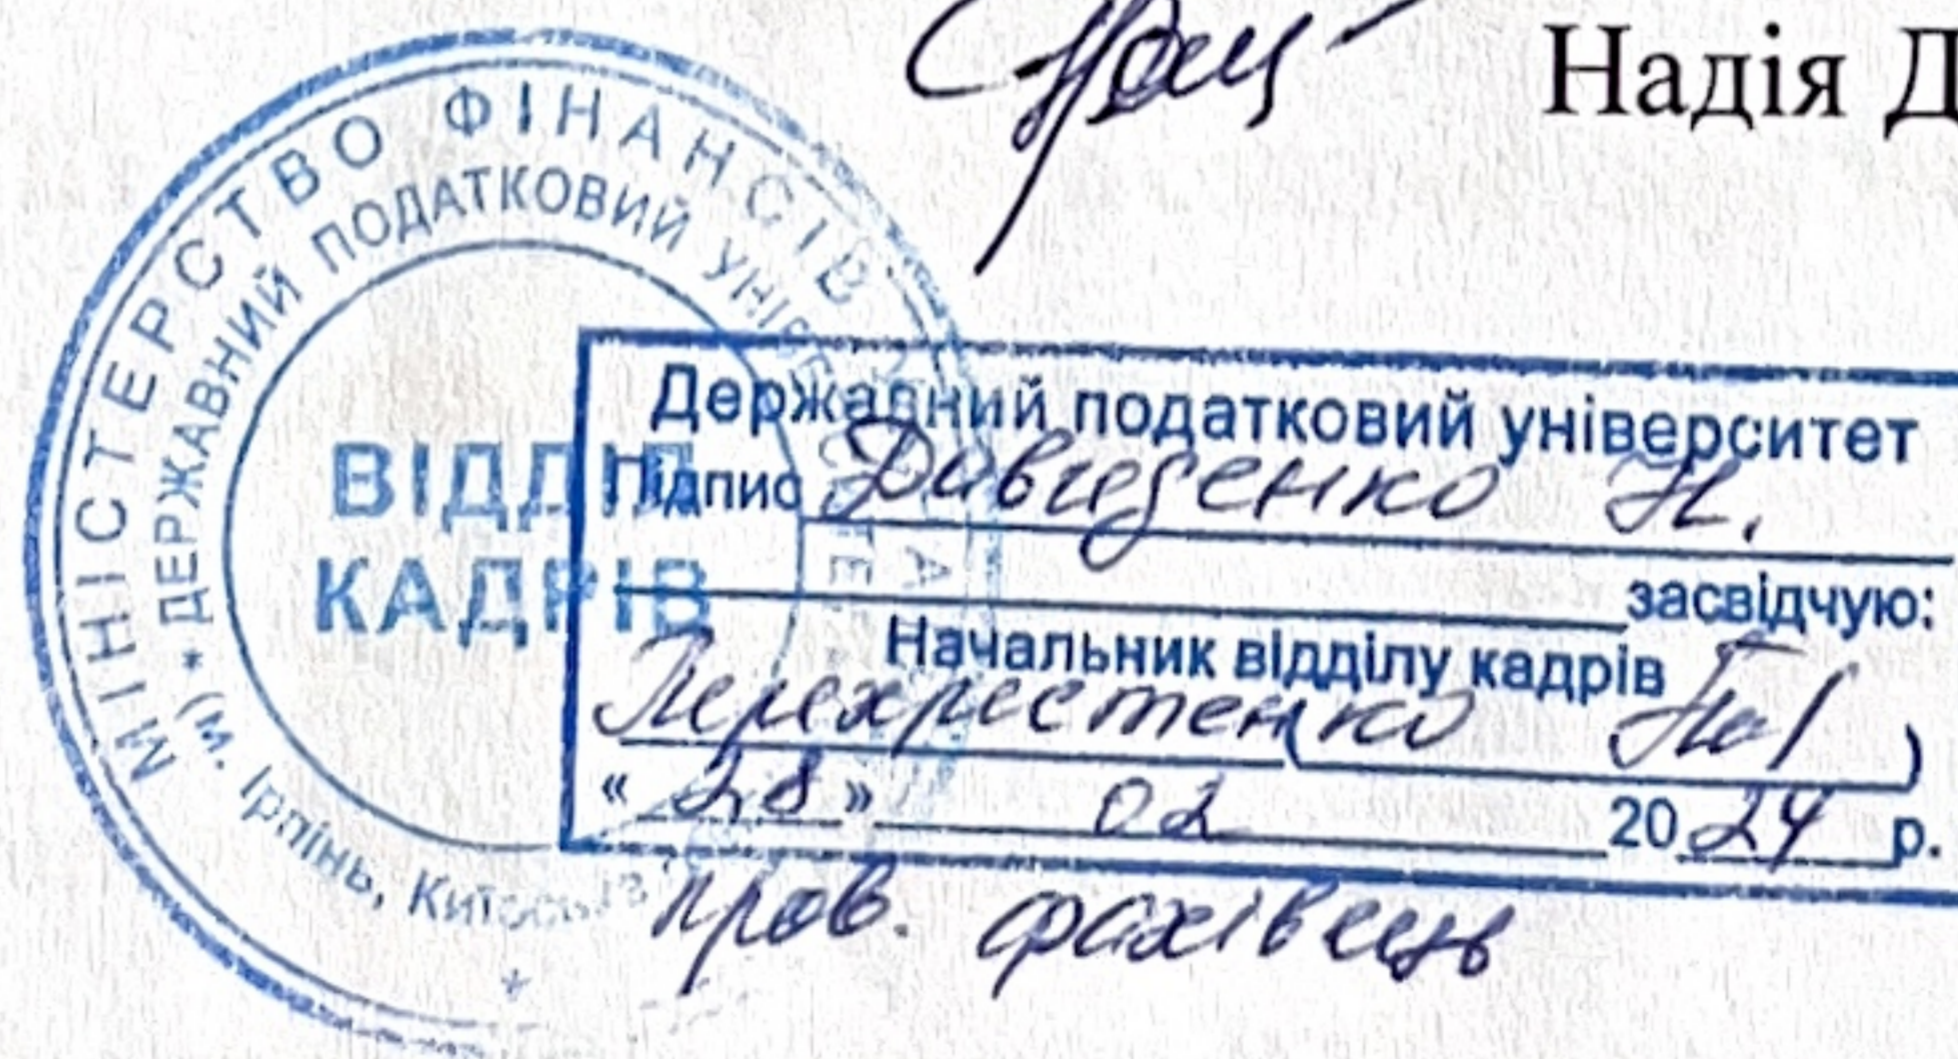 Надія Д
МІНІСТЕРСТВО ФІНАНСІВ
* ДЕРЖАВНИЙ ПОДАТКОВИЙ
(м. Ірпінь,
ВІДДІЛ
КАДРІВ
Державний податковий університет
Підпис Давиденко Н.
засвідчую:
Начальник відділу кадрів
Перехрестенко
« 28 » 02 20 24 р.
пров. фахівець